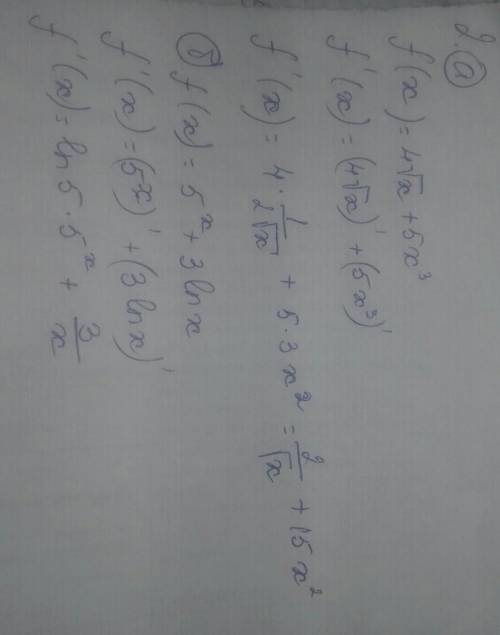 2. а
f(x) = 4√x + 5x³
f'(x) = (4√x)' + (5x³)'
f'(x) = 4 · 1/(2√x) + 5·3x² = 2/√x + 15x²
б f(x) = 5ˣ + 3 ln x
f'(x) = (5ˣ)' + (3 ln x)'
f'(x) = ln 5 · 5ˣ + 3/x